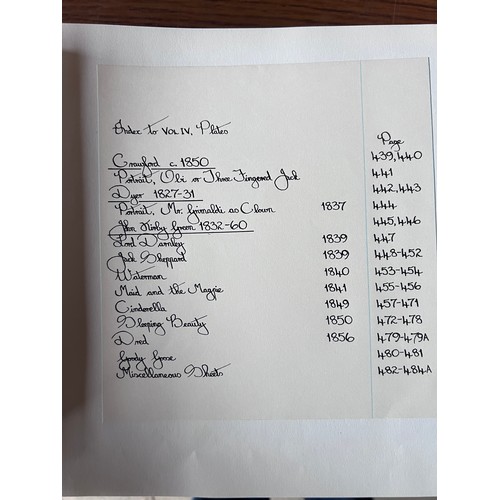 Index to VOL IV, Plates
Page
Crayford c. 1850 439,440
Portrait, Obi or Three Fingered Jack 441
Dyer 1827-31 442,443
Portrait, Mr. Grimaldi as Clown 1837 444
John Kirby Green 1832-60 445,446
Lord Darnley 1839 447
Jack Sheppard 1839 448-452
Waterman 1840 453-454
Maid and the Magpie 1841 455-456
Cinderella 1849 457-471
Sleeping Beauty 1850 472-478
Dred 1856 479-479A
Goody Goose 480-481
Miscellaneous Sheets 482-484A